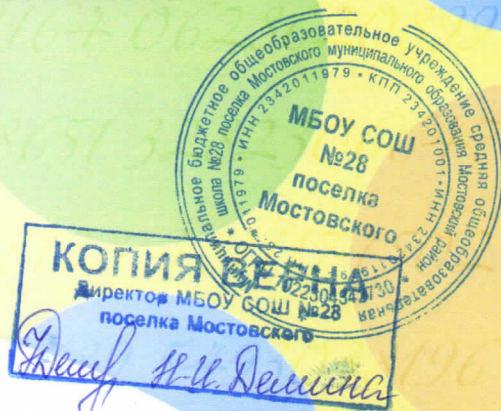 муниципальное бюджетное общеобразовательное учреждение средняя общеобразовательная
школа №28 поселка Мостовского муниципального образования Мостовский район
ИНН 2342011979 • КПП 234201001 • ИНН
МБОУ СОШ
№28
поселка
Мостовского
КОПИЯ ВЕРНА
Директор МБОУ СОШ №28
поселка Мостовского
Н.И. Демина